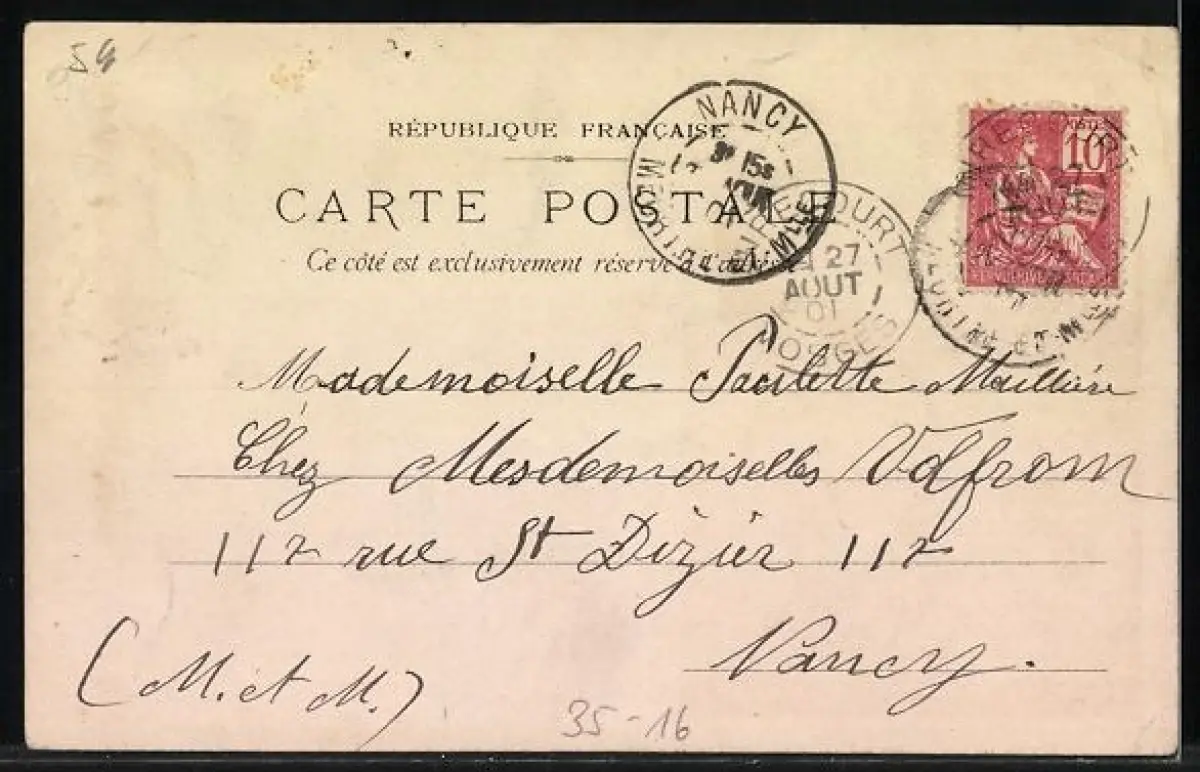 54
RÉPUBLIQUE FRANÇAISE
CARTE POSTALE
Ce côté est exclusivement réservé à l'adresse
NANCY
MEURTHE
15
27
AOUT
01
VOSGES
MIRECOURT
10
Mademoiselle Paulette Maillière
Chez Mesdemoiselles
112 rue St Dizier 112
Nancy.
(M. et M.)
35-16